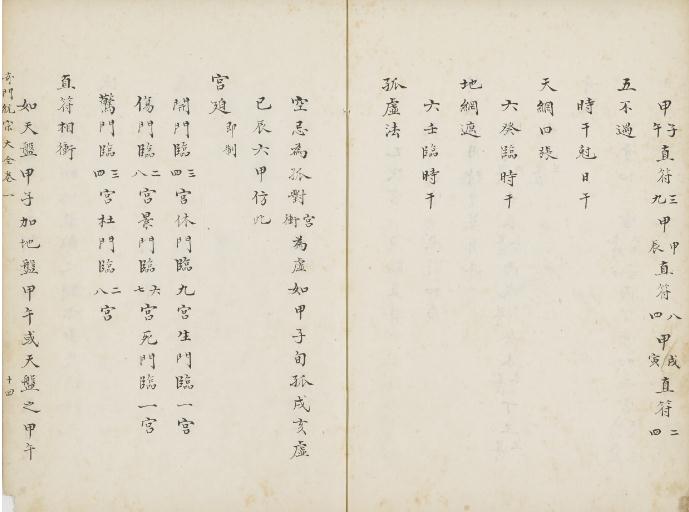 甲子午直符三九甲甲辰直符八四甲戌寅直符二四
五不過
時干尅日干
天網四張
六癸臨時干
地網遮
六壬臨時干
孤虛法
空忌為孤對宮衝為虛如甲子旬孤戌亥虛
巳辰六甲仿此
宮迫即制
開門臨三四宮休門臨九宮生門臨一宮
傷門臨二八宮景門臨六七宮死門臨一宮
驚門臨三四宮杜門臨二八宮
直符相衝
如天盤甲子加地盤甲午或天盤之甲午
奇門統宗大全卷一
十四